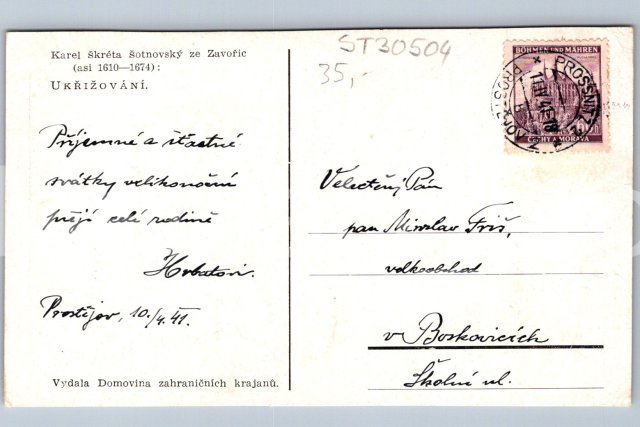 Karel Škréta šotnovský ze Zavořic
(asi 1610—1674):
UKŘIŽOVÁNÍ.
Příjemné a šťastné
svátky velikonoční
přejí celé rodině
Prostějov, 10./4. 41.
Vydala Domovina zahraničních krajanů.
ST30504
35,-
BÖHMEN UND MÄHREN
ČECHY A MORAVA
PROSSNITZ
Velectěný Pán
pan Miroslav Friš,
velkoobchod
v Boskovicích
Školní ul.